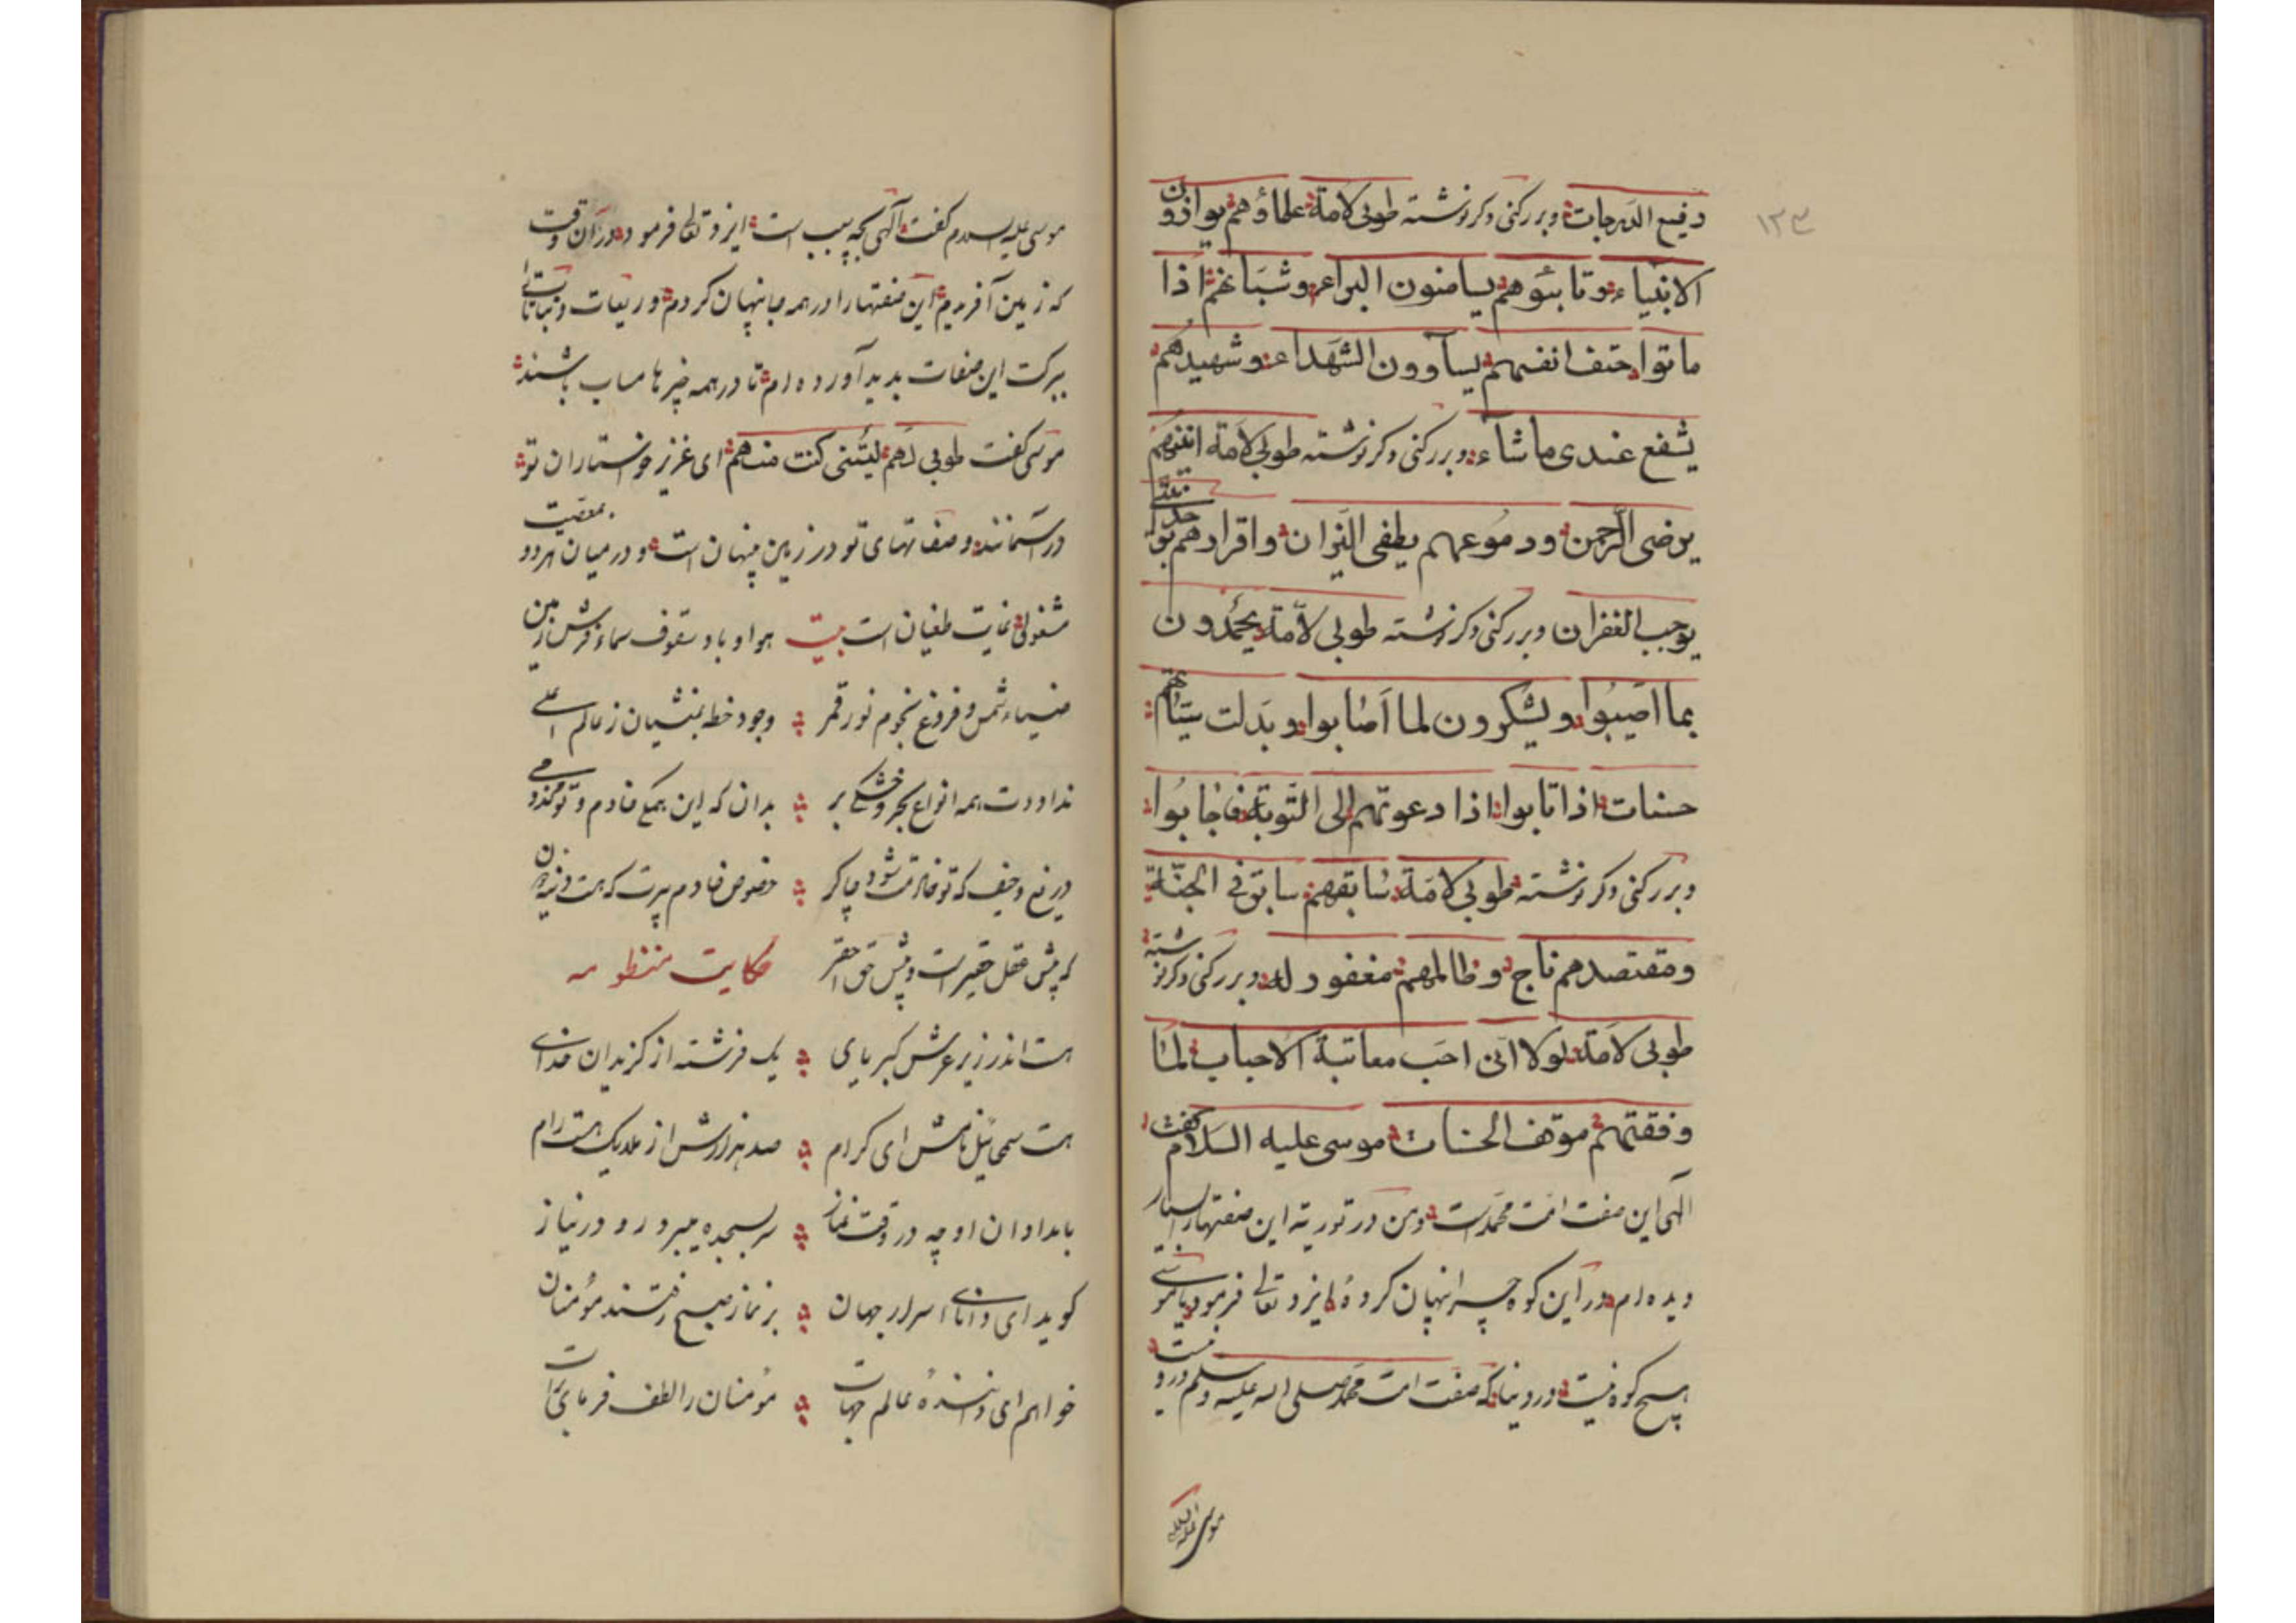 ۱۲۳
رفیع الدرجات و بر رکنی دکر نوشته طوبی لامة علماؤهم یوازون
الانبیاء و تائبوهم یسامنون البراء و شبانهم اذا
ماتوا حتف انفسهم یساوون الشهداء و شهیدهم
یشفع عندی ما شاء و بر رکنی دکر نوشته طوبی لامة انینهم
یرضی الرحمن و دموعهم یطفی النیران و اقرارهم
یوجب الغفران و بر رکنی دکر نوشته طوبی لامة یحمدون
بما اصیبوا و یشکرون لما اصابوا و بدلت سیئاتهم
حسنات اذا تابوا اذا دعوتهم الی التوبة فاجابوا
و بر رکنی دکر نوشته طوبی لامة سابقهم سابق فی الجنة
و مقتصدهم ناج و ظالمهم مغفور له و بر رکنی دکر نوشته
طوبی لامة لولا انی احب معاتبة الاحباب لما
وفقتهم موقف الحسنات موسی علیه السلام کفت
الهی این صفت امت محمد است و من در توریة این صفتها را بسیار
دیده ام در این کوه چرا پنهان کردهٔ ایزد تعالی فرمود یا موسی
هیچ کوه نیست در دنیا که صفت امت محمد صلی الله علیه وسلم درو نیست
موسی علیه السلام
موسی علیه السلام کفت الهی بچه سبب است ایزد تعالی فرمود در آن وقت
که زمین آفریدم این صفتها را در همه جا پنهان کردم و ریعات و نباتات
ببرکت این صفات بدید آورده ام تا در همه خیرها مساب باشند
موسی کفت طوبی لهم لیتنی کنت منهم ای عزیز خواستاران تو
در آسمانند و صفاتهای تو در زمین پنهان است و در میان هر دو بمعصیت
مشغولی غایت طغیان است بیت هوا و باد سقوف سماء و فرش زمین
ضیاء شمس و فروغ نجوم نور قمر وجود خطه نشیان ز عالم اعلی
ندا و دت همه انواع بحر و خشکی بر بدان که این همه خادم و تو مخدومی
دریغ و حیف که تو خادمت شود چاکر خصوص خادم پیرت که هست دنیی دون
که پیش عقل حقیر است و پیش حق احقر حکایت منظومه
هست اندر زیر عرش کبریای یک فرشته از کزیدان خدای
هست سمحائیل نامش ای کرام صد هزارش از ملایک هست رام
بامدادان او چه در وقت نماز سر بسجده میبرد رو در نیاز
کوید ای دانای اسرار جهان بر نماز صبح رفتند مؤمنان
خواهم ای دانندهٔ عالم جهات مؤمنان را لطف فرمای